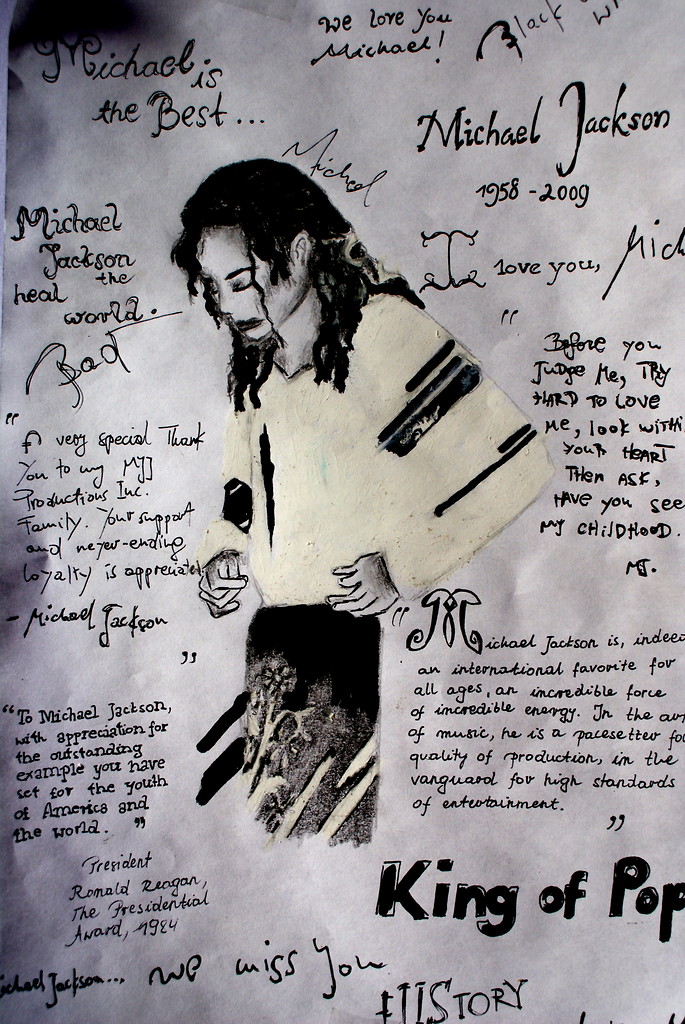 Michael is
the Best...
we love you
Michael!
Black
Michael
Michael Jackson
1958 - 2009
I love you, Mich
Michael
Jackson
the
heal
world.
Bad
"
Before you
Judge Me, TRY
HARD TO LOVE
Me, look withi
your HEART
THEN ASK,
HAVE you see
My CHILDHOOD.
MJ.
"
A very special Thank
You to my MJJ
Productions Inc.
Family. Your support
and never-ending
loyalty is appreciated
- Michael Jackson
"
"
Michael Jackson is, indeed
an international favorite for
all ages, an incredible force
of incredible energy. In the
of music, he is a pacesetter fo
quality of production, in the
vanguard for high standards
of entertainment.
"
"To Michael Jackson,
with appreciation for
the outstanding
example you have
set for the youth
of America and
the world. "
President
Ronald Reagan,
The Presidential
Award, 1984
King of Pop
ichael Jackson... we miss you
HIStORY